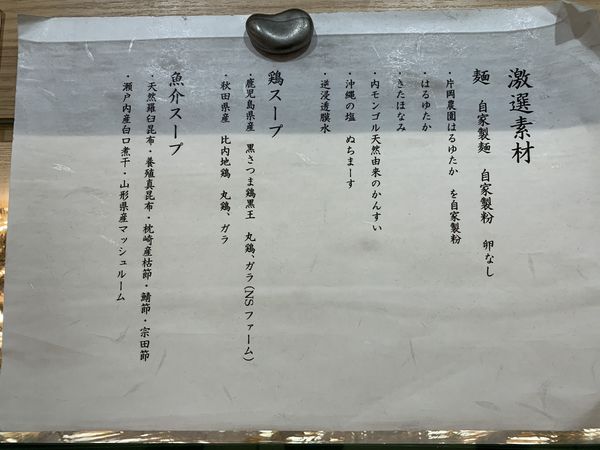 激選素材
麺　自家製麺　自家製粉　卵なし
・片岡農園はるゆたか　を自家製粉
・はるゆたか
・きたほなみ
・内モンゴル天然由来のかんすい
・沖縄の塩　ぬちまーす
・逆浸透膜水
鶏スープ
・鹿児島県産　黒さつま鶏黒王　丸鶏、ガラ(NSファーム)
・秋田県産　比内地鶏　丸鶏、ガラ
魚介スープ
・天然羅臼昆布・養殖真昆布・枕崎産枯節・鯖節・宗田節
・瀬戸内産白口煮干・山形県産マッシュルーム